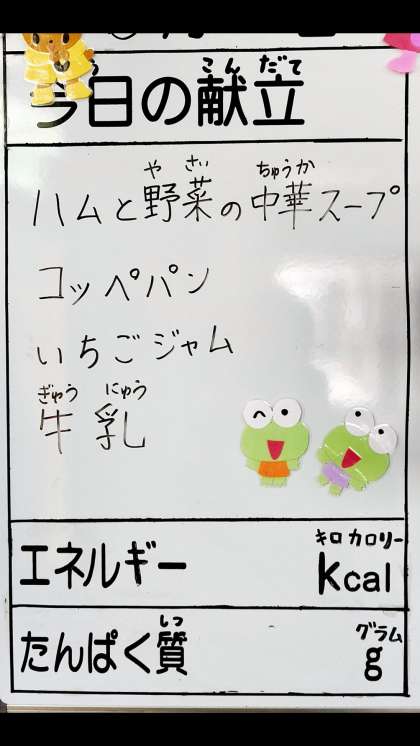 今日の献立
こんだて
やさい ちゅうか
ハムと野菜の中華スープ
コッペパン
いちごジャム
ぎゅう にゅう
牛乳
キロカロリー
エネルギー kcal
しつ グラム
たんぱく質 g